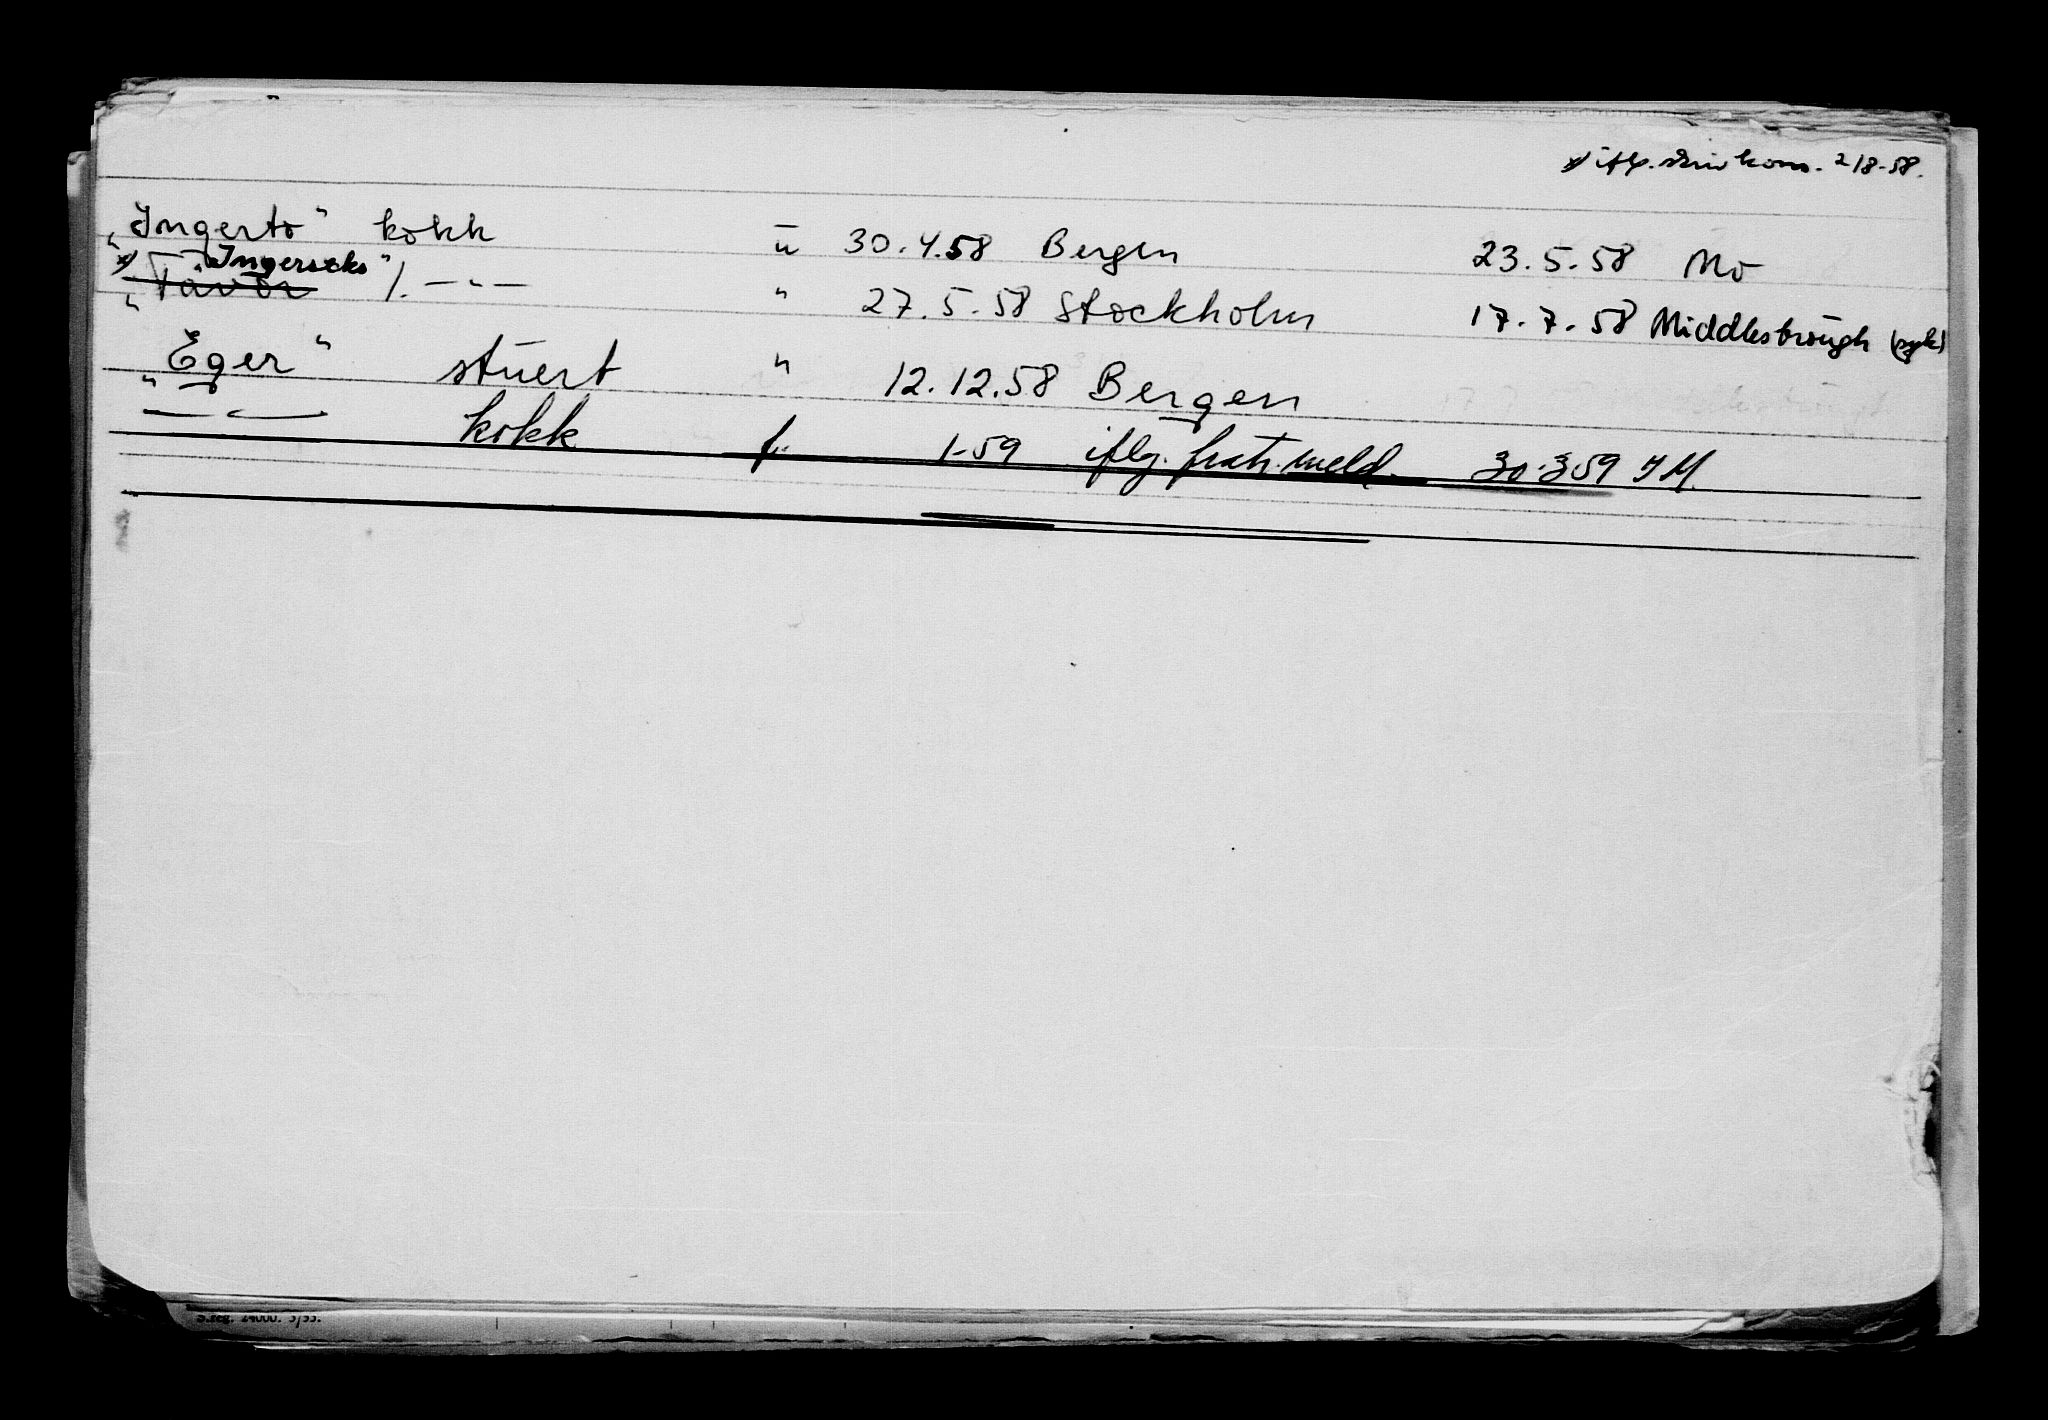 x) iflg. skriv kom. 2/8-58.
"Ingerto" kokk u 30.4.58 Bergen 23.5.58 Mo
x) "Ingerseks"
"Tavor" /. — " — " 27.5.58 Stockholm 17.7.58 Middlesbrough (syk)
"Eger" stuert " 12.12.58 Bergen
" — — kokk f. 1-59 iflg. fratr. meld. 30-3-59 I M.
S.reg. 24000. 3/53.